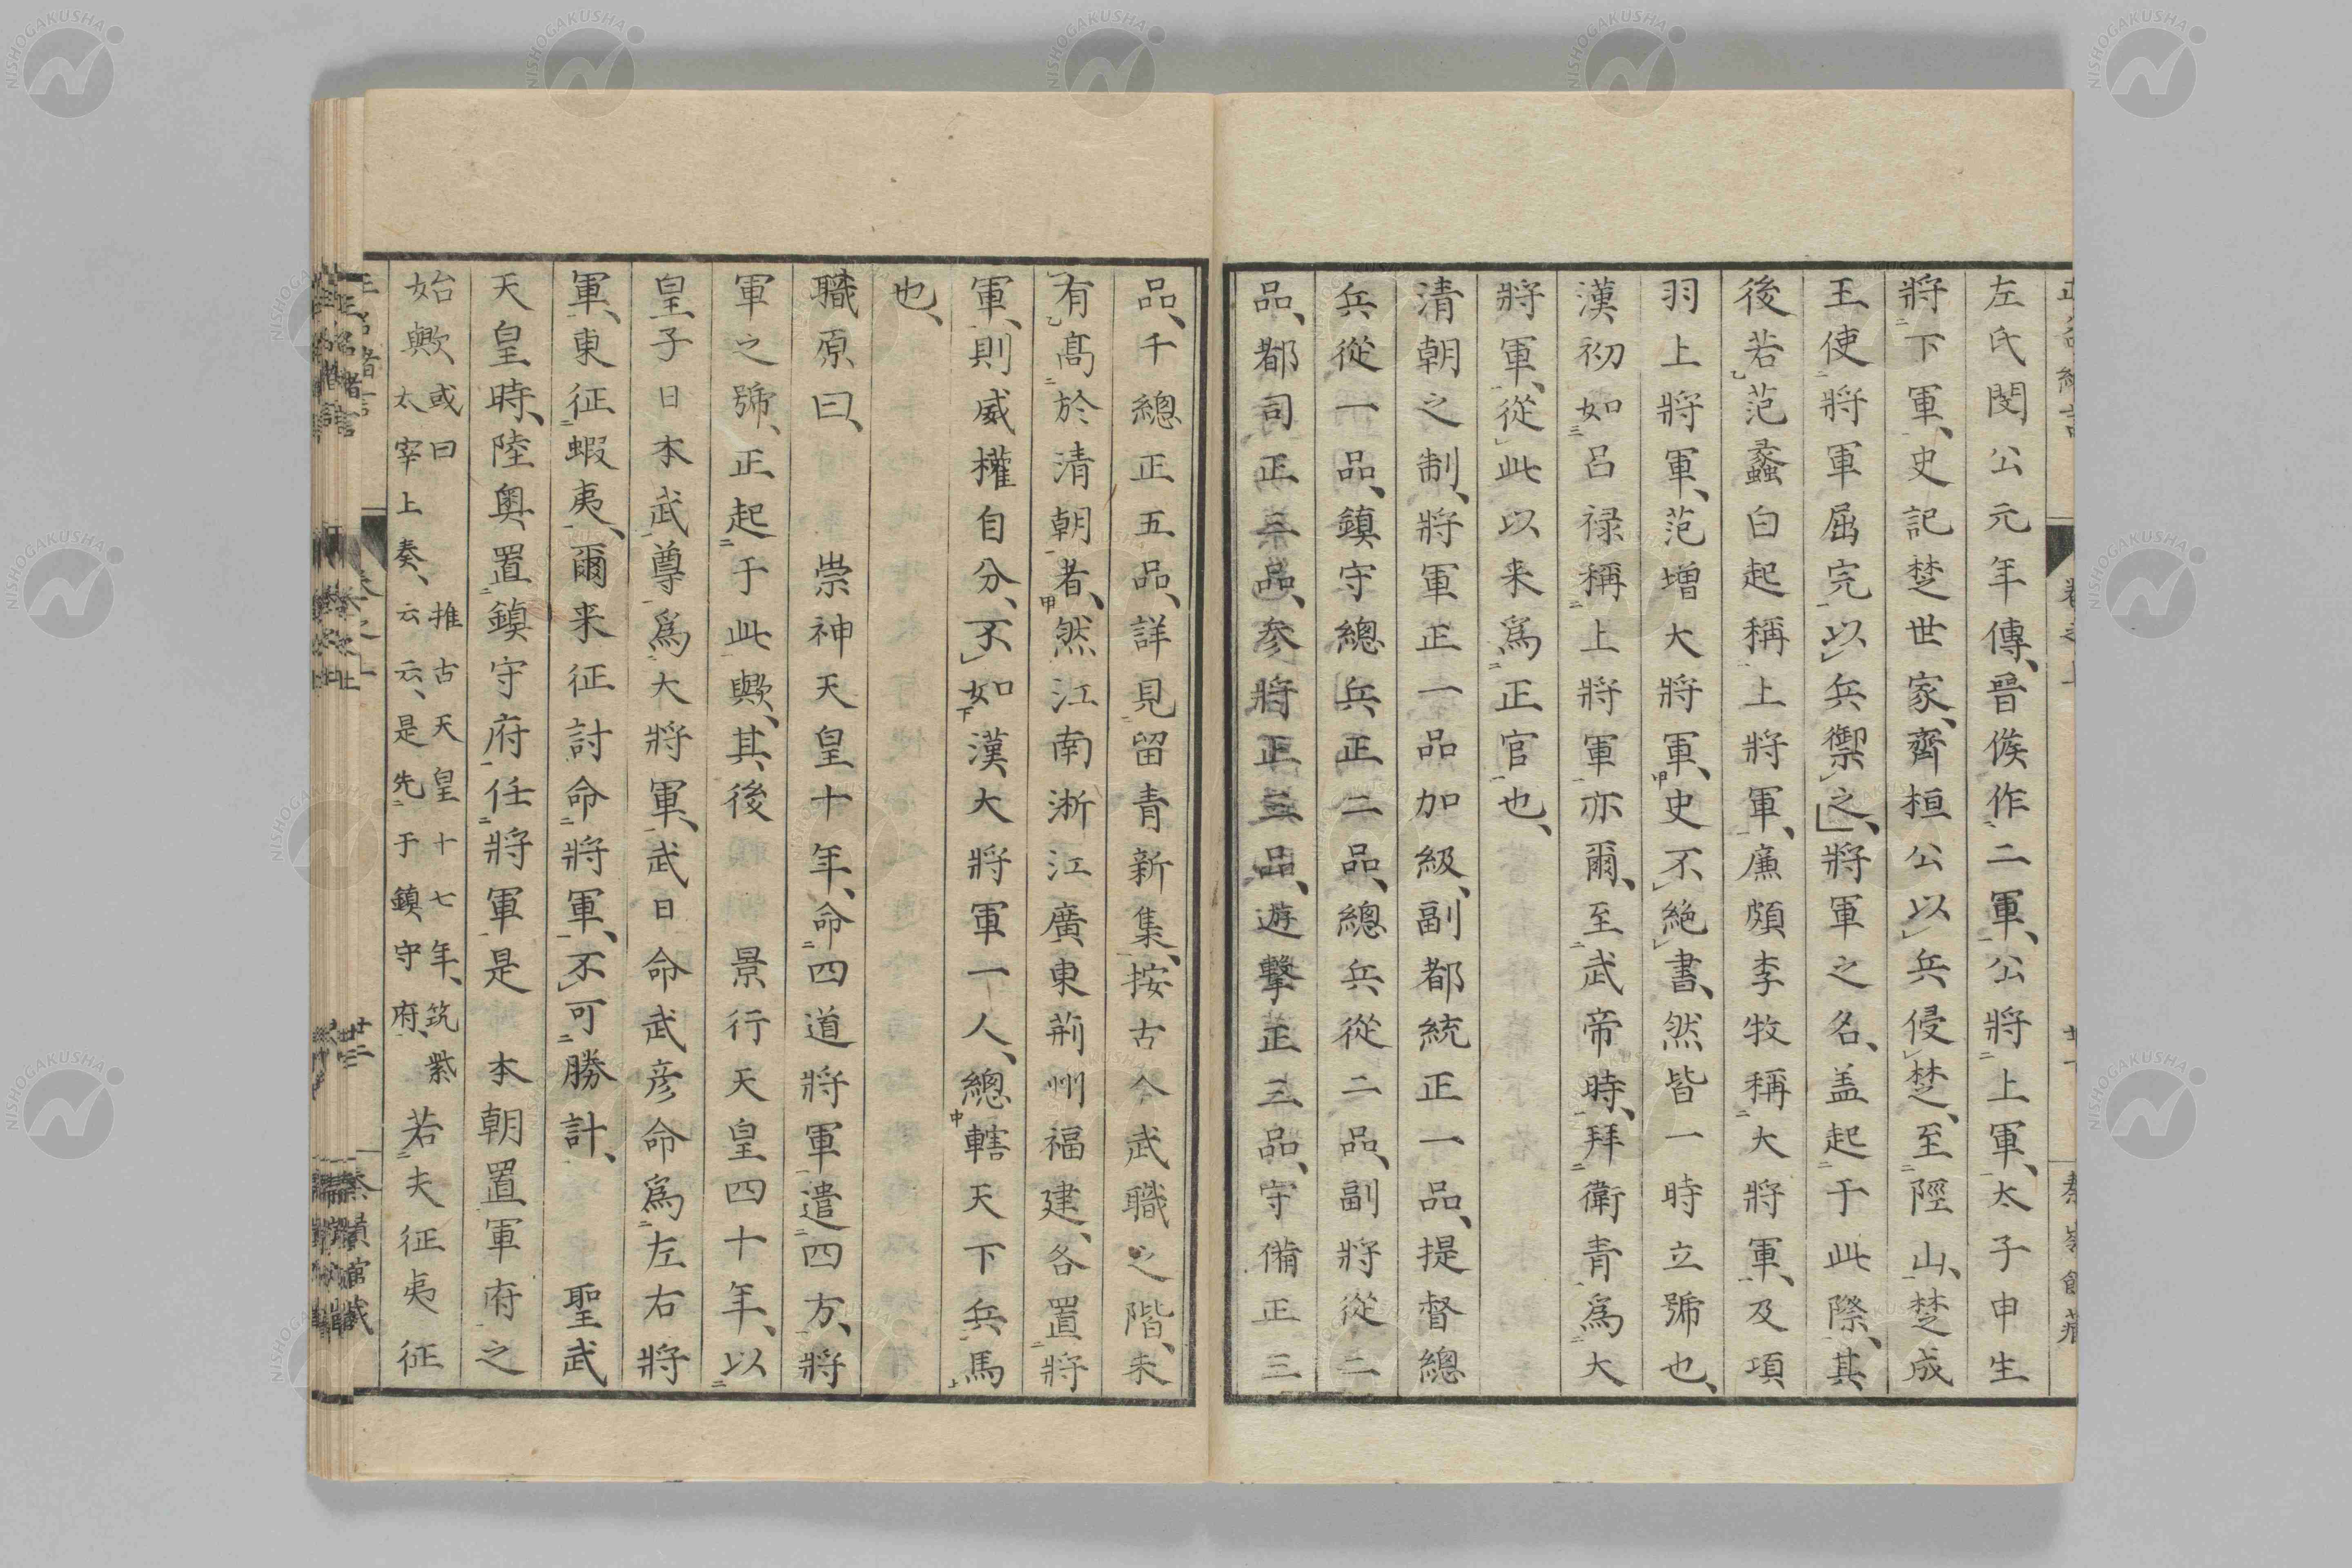 左氏閔公元年傳、晉侯作二軍、公將上軍、太子申生
將下軍、史記楚世家、齊桓公以兵侵楚、至陘山、楚成
王使將軍屈完以兵禦之、將軍之名、盖起于此際、其
後若范蠡白起稱上將軍、廉頗李牧稱大將軍、及項
羽上將軍、范增大將軍、史不絶書、然皆一時立號也、
漢初如呂禄稱上將軍亦爾、至武帝時、拜衛青爲大
將軍、從此以来爲正官也、
清朝之制、將軍正一品加級、副都統正一品、提督總
兵從一品、鎮守總兵正二品、總兵從二品、副將從二
品、都司正三品、参將正三品、遊擊正三品、守備正三
品、千總正五品、詳見留青新集、按古今武職之階、未
有髙於清朝者、然江南淅江廣東荊州福建、各置將
軍、則威權自分、不如漢大將軍一人、總轄天下兵馬
也、
職原曰、崇神天皇十年、命四道將軍遣四方、將
軍之號、正起于此歟、其後景行天皇四十年、以
皇子日本武尊爲大將軍、武日命武彦命爲左右將
軍、東征蝦夷、爾来征討命將軍、不可勝計、聖武
天皇時、陸奥置鎮守府任將軍是本朝置軍府之
始歟、或曰推古天皇十七年、筑紫太宰上奏、云云、是先于鎮守府、若夫征夷征
卷之上
NISHOGAKUSHA